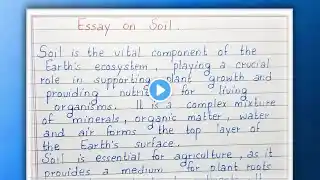 Essay on Soil.
Soil is the vital component of the
Earth's ecosystem, playing a crucial
role in supporting plant growth and
providing for living
organisms. It is a complex mixture
of minerals, organic matter, water
and air forms the top layer of
the Earth's surface.
Soil is essential for agriculture, as it
provides a medium for plant roots